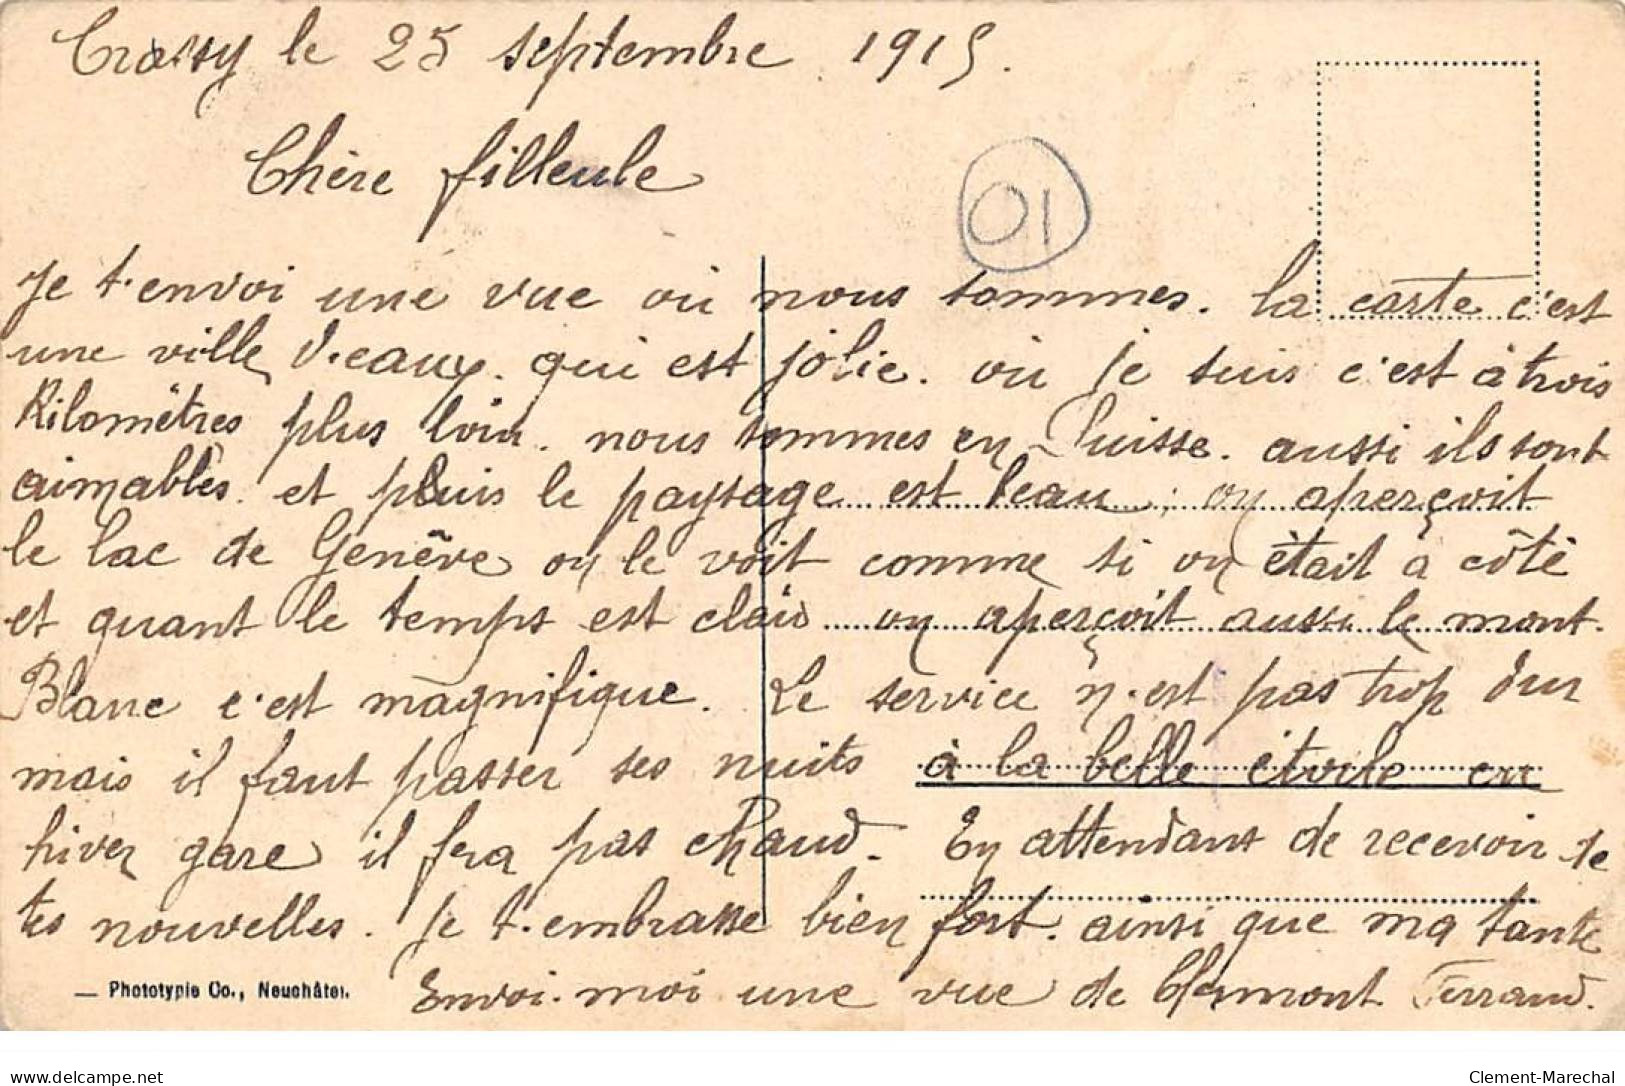 Crassy le 25 septembre 1915.
Chère filleule
01
Je t.envoi une vue où nous sommes. la carte c'est
une ville d.eaux. qui est jolie. où je suis c'est à trois
Kilomètres plus loin. nous sommes en Suisse. aussi ils sont
aimables. et puis le paysage est beau; on aperçoit
le lac de Genève on le voit comme si on était a côté
et quant le temps est clair on aperçoit aussi le mont.
Blanc c'est magnifique. Le service n.est pas trop dur
mais il faut passer ses nuits à la belle étoile en
hiver gare il fera pas chaud. En attendant de recevoir de
tes nouvelles. Je t.embrasse bien fort. ainsi que ma tante
Envoi-moi une vue de Clermont Ferrand.
— Phototypie Co., Neuchâtel.
delcampe.net
Clement-Marechal